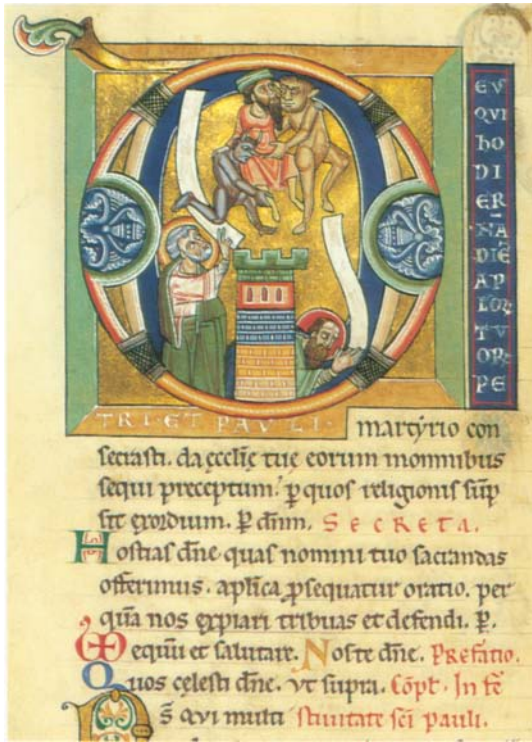 D
EV
QVI
hO
DI
ER-
NA
DIĒ
AP
LOR
TV
OR
PE
TRI·ET PAVLI·
martyrio con
secrasti. da ęcclię tuę eorum inomnibus
sequi preceptum. ꝑ quos religionis sūp
sit exordium. P̄ dn̄m. SECRETA.
Hostias dn̄e quas nomini tuo sacrandas
offerimus. aplica ꝓsequatur oratio. per
quā nos expiari tribuas et defendi. P̄.
equū et salutare. Nos te dn̄e. Prefatio.
Quos celesti dn̄e. vt supra. Cōpl. In fe
Ds̄ qui multi stiuitate sci pauli.